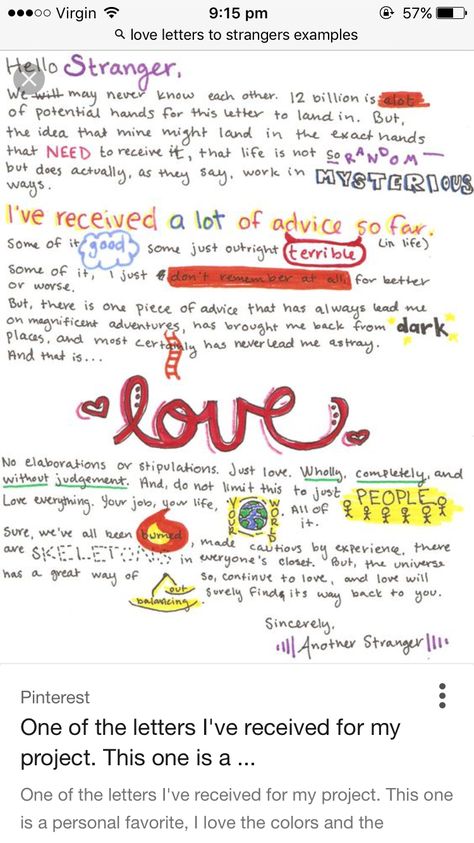 Virgin 9:15 pm 57%
love letters to strangers examples
Hello Stranger,
We will may never know each other. 12 billion is alot
of potential hands for this letter to land in. But,
the idea that mine might land in the exact hands
that NEED to receive it, that life is not so RANDOM —
but does actually, as they say, work in MYSTERIOUS
ways.
I've received a lot of advice so far.
(in life)
Some of it good some just outright terrible
Some of it, I just don't remember at all, for better
or worse.
But, there is one piece of advice that has always lead me
on magnificent adventures, has brought me back from dark
places, and most certainly has never lead me astray.
And that is...
love
No elaborations or stipulations. Just love. Wholly, completely, and
without judgement. And, do not limit this to just PEOPLE
Love everything. Your job, your life, YOUR WORLD. All of
it.
Sure, we've all been burned, made cautious by experience, there
are SKELETONS in everyone's closet. But, the universe
has a great way of balancing out So, continue to love, and love will
surely find its way back to you.
Sincerely,
Another Stranger
Pinterest
One of the letters I've received for my
project. This one is a ...
One of the letters I've received for my project. This one
is a personal favorite, I love the colors and the